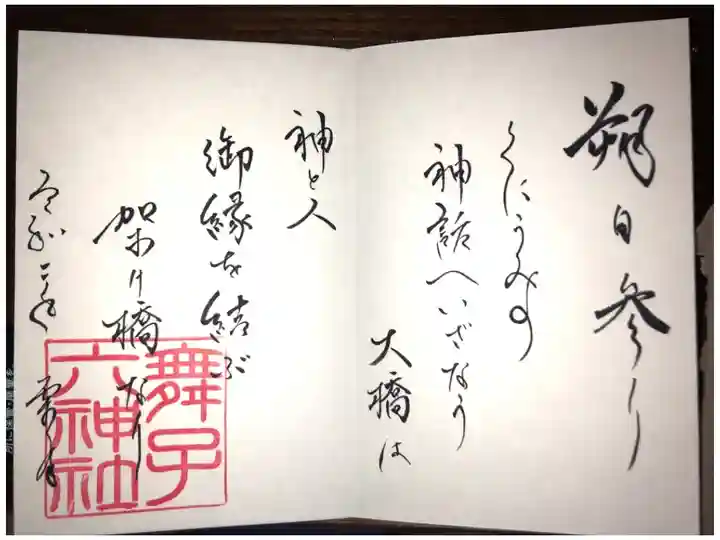 朔日参り
くにうみの
神話へいざなう
大橋は
神と人
御縁を結ぶ
架け橋なり
令和二年
舞子
六神社